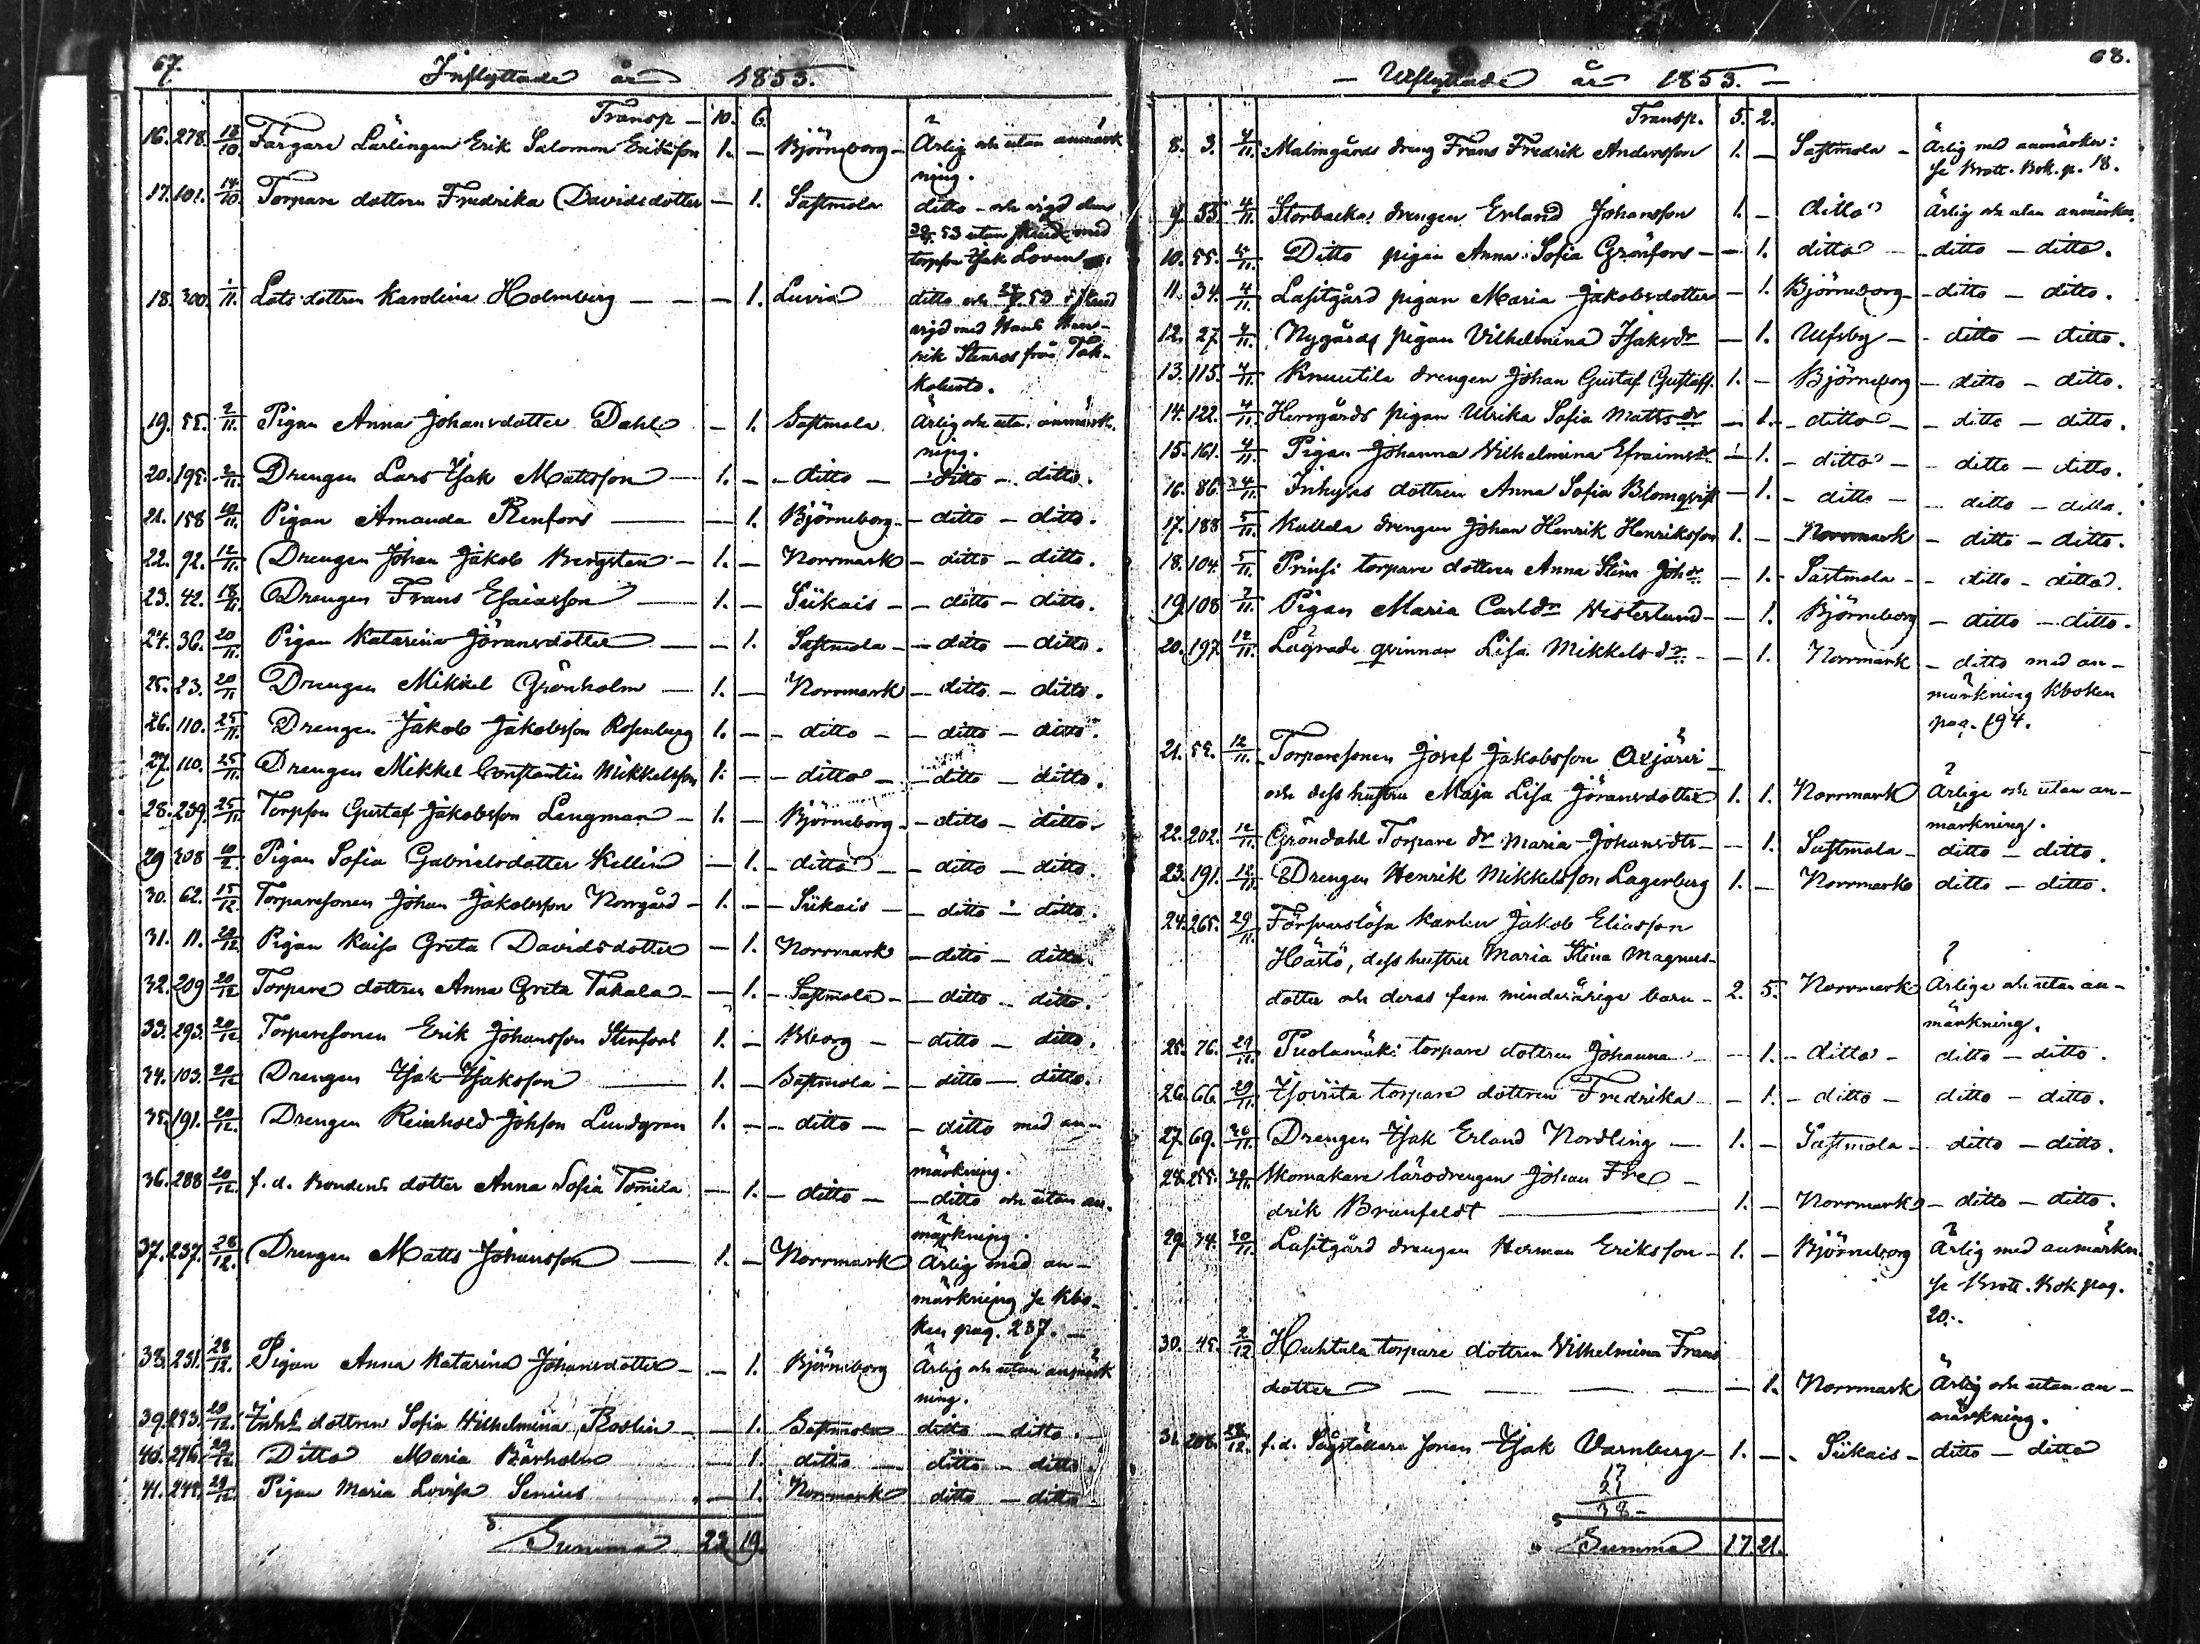 67.
Inflyttade år 1853.
Transp – 10. 6.
16. 278. 13/10 Färgare Lärlingen Erik Salomon Eriksson 1. – Björneborg – Ärlig och utan anmärk
ning.
17. 101. 14/10 Torpare dottren Fredrika Davidsdotter – 1. Sastmola ditto – och vigd den
53 utan med
torpson Isak Loven
18. 300. 1/11. Lots dottren Karolina Holmberg – – – 1. Luvia ditto och 53
vigd med Hen-
rik Stenros från Tak-
kolaisto.
19. 55. 2/11. Pigan Anna Johansdotter Dahl – 1. Sastmola Ärlig och utan anmärk-
ning.
20. 195. 2/11. Drengen Lars Isak Mattsson – 1. – – ditto – – ditto – ditto.
21. 158 10/11. Pigan Amanda Renfors – – 1. Björneborg – – ditto – ditto.
22. 92. 12/11. Drengen Johan Jakob Bergsten – 1. – Norrmark – ditto – ditto.
23. 42. 18/11. Drengen Frans Esaiasson – 1. – Siikais – – ditto – ditto.
24. 36. 20/11. Pigan Katarina Göransdotter – – 1. Sastmola – – ditto – ditto.
25. 23. 20/11 Drengen Mikkel Grönholm – 1. – Norrmark – ditto – ditto.
26. 110. 25/11. Drengen Jakob Jakobsson Rosenberg 1. – – ditto – – ditto – ditto.
27. 110. 25/11 Drengen Mikkel Constantin Mikkelsson 1. – – ditto – – ditto – ditto.
28. 239. 25/11 Torpson Gustaf Jakobsson Lengman – 1. – Björneborg – – ditto – ditto.
29 308 10/12. Pigan Sofia Gabrielsdotter Kellin – 1. – ditto – – ditto – ditto.
30. 62. 15/12. Torparesonen Johan Jakobsson Norrgård – 1. – – Siikais – – ditto – ditto.
31. 11. 20/12 Pigan Kaisa Greta Davidsdotter – 1. Norrmark – ditto – ditto
32. 209 20/12 Torpare dottren Anna Greta Takala – – 1. – Sastmola – – ditto – ditto.
33. 293. 20/12 Torparesonen Erik Johansson Stenfors 1. – Bborg – – ditto – ditto.
34. 103. 20/12 Drengen Isak Isaksson 1. – Sastmola – – ditto – ditto.
35. 191. 20/12. Drengen Reinhold Johsson Lundgren 1. – – ditto – – ditto med an-
märkning.
36. 288 20/12. f. d. Bondens dotter Anna Sofia Tomila – 1. – ditto – – ditto och utan an-
märkning.
37. 237. 28/12. Drengen Matts Johansson – 1. – Norrmark Ärlig med an-
märkning se Kbo-
ken pag. 237. –
38. 231. 28/12. Pigan Anna Katarina Johansdotter – – 1. Björneborg Ärlig och utan anmärk
ning.
39. 283. 29/12. Inhs dottren Sofia Wilhelmina Roslin – – 1. Sastmola ditto – ditto.
40. 276. 29/12 Ditto Maria Björkholm – 1. ditto – ditto – ditto.
41. 244. 29/12. Pigan Maria Lovisa Senius – 1. Norrmark ditto – ditto
Summa 23. 19.
68.
– Utflyttade år 1853. –
Transp. 5. 2.
8. 3. 4/11. Malmgårds dreng Frans Fredrik Andersson 1. – Sastmola – Ärlig med anmärkn:
se Brott. Bok. p. 18.
9. 55. 4/11. Storbacka drengen Erland Johansson 1. – ditto Ärlig och utan anmärkn.
10. 55. 4/11. Ditto pigan Anna Sofia Granfors – – 1. ditto – ditto – ditto.
11. 34. 4/11. Lasitgård pigan Maria Jakobsdotter – 1. Björneborg – ditto – ditto.
12. 27 4/11. Nygårds pigan Vilhelmina Isaksdr – 1. Ulfsby – – ditto – ditto.
13. 115. 4/11. Knuutila drengen Johan Gustaf Gustafss. 1. – Björneborg – ditto – ditto.
14. 122. 4/11. Herrgårds pigan Ulrika Sofia Mattsdr – 1. – ditto – – ditto – ditto.
15. 161. 4/11. Pigan Johanna Vilhelmina Efraimsdr – 1. – ditto – – ditto – ditto.
16. 86. 4/11. Inhyses dottren Anna Sofia Blomqvist – 1. – ditto – ditto – ditto.
17. 188 5/11. Kullela drengen Johan Henrik Henriksson 1. – – Norrmark – ditto – ditto.
18. 104. 5/11. Prinsi torpare dottren Anna Stina Johdr – 1. – Sastmola – – ditto – ditto.
19. 108 7/11. Pigan Maria Carldr Westerlund – – 1. Björneborg – ditto – ditto.
20. 197. 12/11. Lägrade qvinnan Lisa Mikkelsdr – – 1. Norrmark – ditto med an-
märkning Kboken
pag. 194.
21. 55. 12/11. Torparesonen Josef Jakobsson Axjärvi
och dess hustru Maja Lisa Göransdotter 1. 1. Norrmark Ärlige och utan an-
märkning.
22. 202. 12/11. Gröndahl Torpare dr Maria Johansdtr – – 1. Sastmola – ditto – ditto.
23. 191. 12/11. Drengen Henrik Mikkelsson Lagerberg 1. – Norrmark ditto – ditto.
24. 265. 29/11. Försvarslöse karlen Jakob Eliasson
Härtö, dess hustru Maria Stina Magnus-
dotter och deras fem minderårige barn – 2. 5. Norrmark Ärlige och utan an-
märkning.
25. 76. 29/11. Puolamäki torpare dottren Johanna – – 1. – ditto – ditto – ditto.
26. 66. 29/11. Isoviita torpare dottren Fredrika – – 1. – ditto – ditto – ditto.
27. 69. 30/11. Drengen Isak Erland Nordling – 1. – Sastmola – ditto – ditto.
28. 255. 30/11. Skomakare lärodrengen Johan Fre –
drik Branfeldt 1. – Norrmark – ditto – ditto.
29. 34. 30/11. Lasitgård drengen Herman Eriksson – 1. – Björneborg Ärlig med anmärkn.
se Brott. Bok pag.
20.
30. 45. 2/12 Huhtala torpare dottren Vilhelmina Frans
dotter – – – – 1. Norrmark Ärlig och utan an-
märkning.
31. 28/12. f. d. Sågställare sonen Isak Varnberg – 1. – – Siikais – ditto – ditto
17
21
38 –
Summa 17. 21.